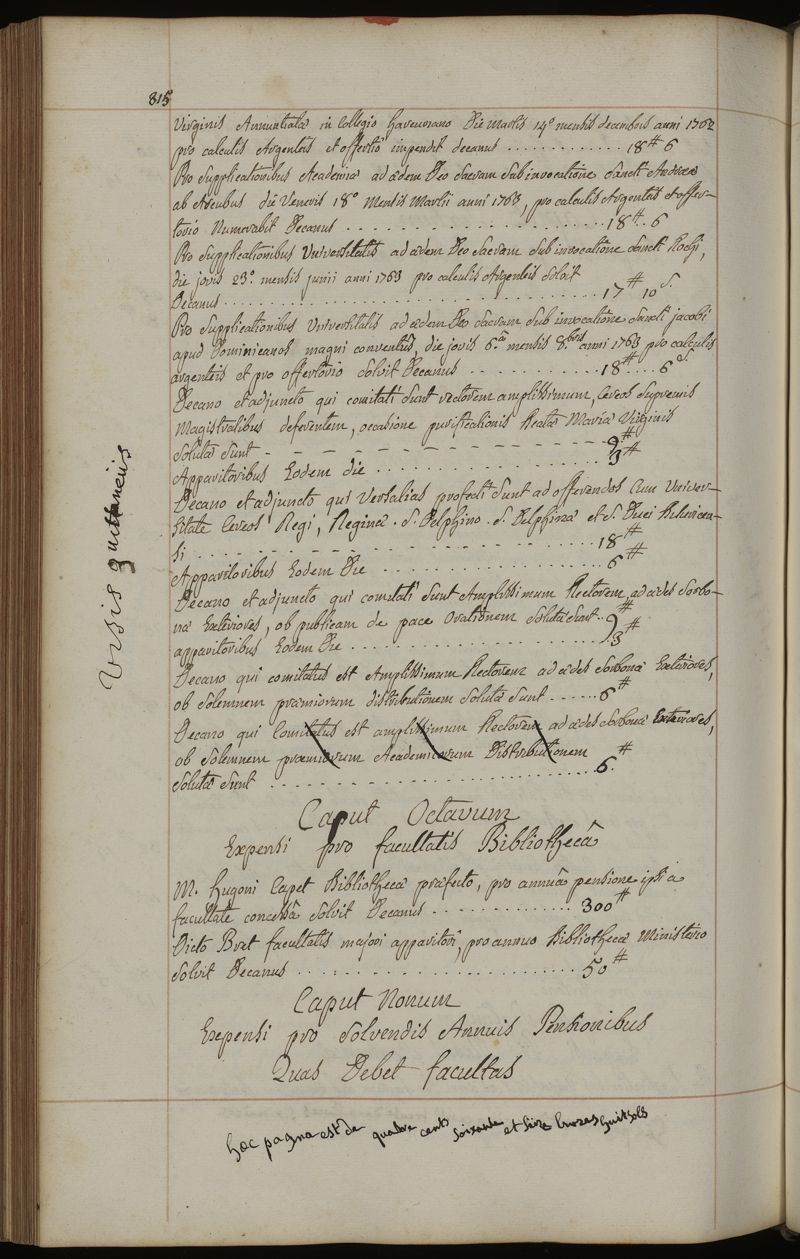 815
Virginis Annuntiatæ in Collegio Navarræo Die Martis 14.º mensis decembris anni 1762
pro calculis Argenteis et offertio impendit decanus . . . . . . . . . . . . 18ᵗᵗ 6
Pro Supplicationibus Academiæ ad ædem Deo Sacram Sub invocatione Sancti Andreæ
ab Arcubus die Veneris 18.º Mensis Martii anni 1763, pro calculis Argenteis et offer-
torio Numerabit Decanus . . . . . . . . . . . . . . . . . . . . . 18ᵗᵗ . . 6
Pro Supplicationibus Universitatis ad ædem Deo Sacram Sub invocatione Sancti Rochi,
die jovis 23.º mensis junii anni 1763 pro calculis Argenteis Solvit
Decanus . . . . . . . . . . . . . . . . . . . . . . . . . . . . . . . . 17ᵗᵗ 10 S.
Pro Supplicationibus Universitatis ad ædem Deo Sacram Sub invocatione Sancti jacobi
apud Dominicanos magni conventûs, die jovis 6.â mensis 8.bris anni 1763 pro calculis
argenteis et pro offertorio Solvit Decanus . . . . . . . . . . . . 18ᵗᵗ . . . . 6 S.
Decano et adjuncto qui comitati Sunt rectorem amplissimum, Cereos Supremis
Magistratibus deferentem, occasione purificationis Beatæ Mariæ Virginis
Soluta Sunt - - - - - - - - - - - - - - - - - - - - - 9ᵗᵗ
Apparitoribus Eodem die . . . . . . . . . . . . . . . . . . . 3ᵗᵗ
Decano et adjuncto qui Versalias profecti Sunt ad offerendos Cum Univer-
sitate Cereos Regi, Reginæ . S. Delphino . S. Delphinæ et S. Duci Bituricen-
si . . . . . . . . . . . . . . . . . . . . . . . . . . . . . . . . 18ᵗᵗ
Apparitoribus Eodem Die . . . . . . . . . . . . . . . . . . . . 6ᵗᵗ
Decano et adjuncto qui comitati Sunt Amplissimum Rectorem ad ædes Sorbo-
næ Exteriores, ob publicam de pace Orationem Soluta Sunt . . 9ᵗᵗ
apparitoribus Eodem Die . . . . . . . . . . . . . . . . . . . . . . 3ᵗᵗ
Decano qui comitatus est Amplissimum Rectorem ad ædes Sorbonæ Exteriores,
ob Solemnem præmiorum distributionem Soluta Sunt . . . . . . 6ᵗᵗ
Decano qui Comitatus est amplissimum Rectorem ad ædes Sorbonæ Exteriores,
ob Solemnem præmiorum Academicorum Distributionem
Soluta Sunt . . . . . . . . . . . . . . . . . . . . . . . . . . . 6.ᵗᵗ
Visis quittanciis
Caput Octavum
Expensi pro facultatis Bibliothecâ
M. Hugoni Capet Bibliothecæ præfecto, pro annuâ pensione ipsi a
facultate concessâ Solvit Decanus . . . . . . . . . . . . . . 300ᵗᵗ
Dicto Bret facultatis majori apparitori, pro annuo Bibliothecæ Ministerio
Solvit Decanus . . . . . . . . . . . . . . . . . . . . . . . . . . 50ᵗᵗ
Caput Nonum
Expensi pro Solvendis Annuis Pensionibus
Quas Debet facultas
hæc pagna est de quatre cents soixante et seize livres huit sols